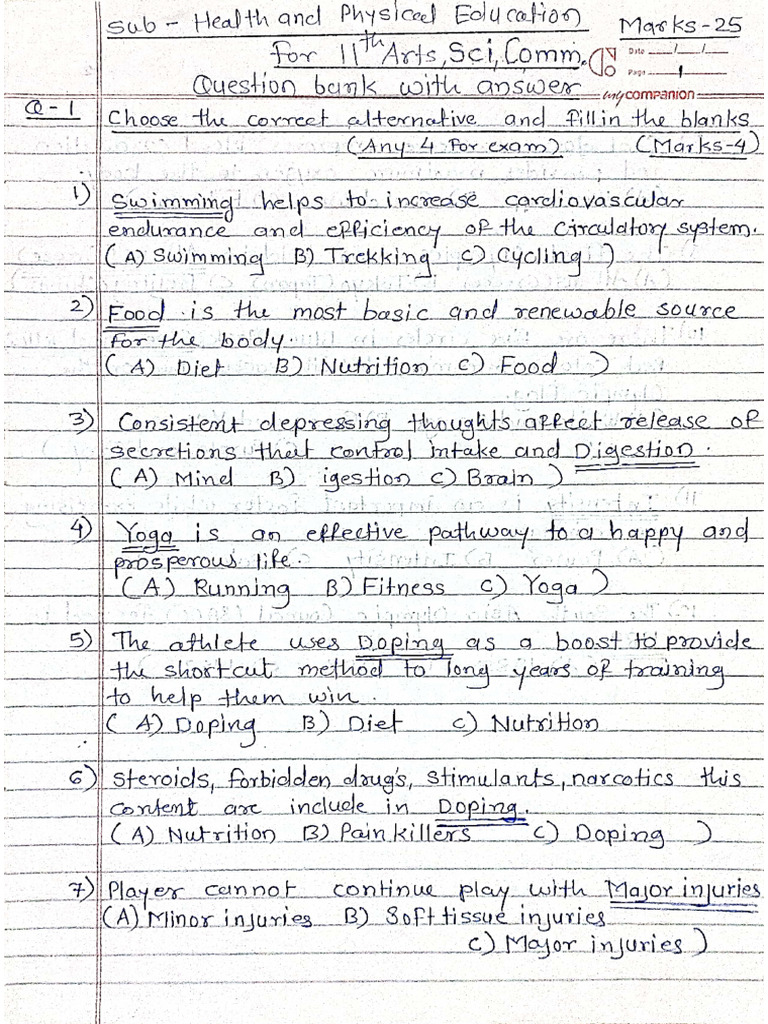 Sub - Health and Physical Education
Marks-25
For 11th Arts, Sci, Comm.
Date / /
Page 1
Question bank with answer
mycompanion
Q-1 Choose the correct alternative and fill in the blanks
(Any 4 for exam) (Marks-4)
1) Swimming helps to increase cardiovascular
endurance and efficiency of the circulatory system.
(A) Swimming B) Trekking C) Cycling )
2) Food is the most basic and renewable source
for the body.
(A) Diet B) Nutrition C) Food )
3) Consistent depressing thoughts affect release of
secretions that control intake and Digestion.
(A) Mind B) igestion C) Brain )
4) Yoga is an effective pathway to a happy and
prosperous life.
(A) Running B) Fitness C) Yoga )
5) The athlete uses Doping as a boost to provide
the shortcut method to long years of training
to help them win.
( A) Doping B) Diet C) Nutrition
6) Steroids, forbidden drug's, stimulants, narcotics this
content are include in Doping.
(A) Nutrition B) Pain killers C) Doping )
7) Player cannot continue play with Major injuries
(A) Minor injuries B) Soft tissue injuries
C) Major injuries )